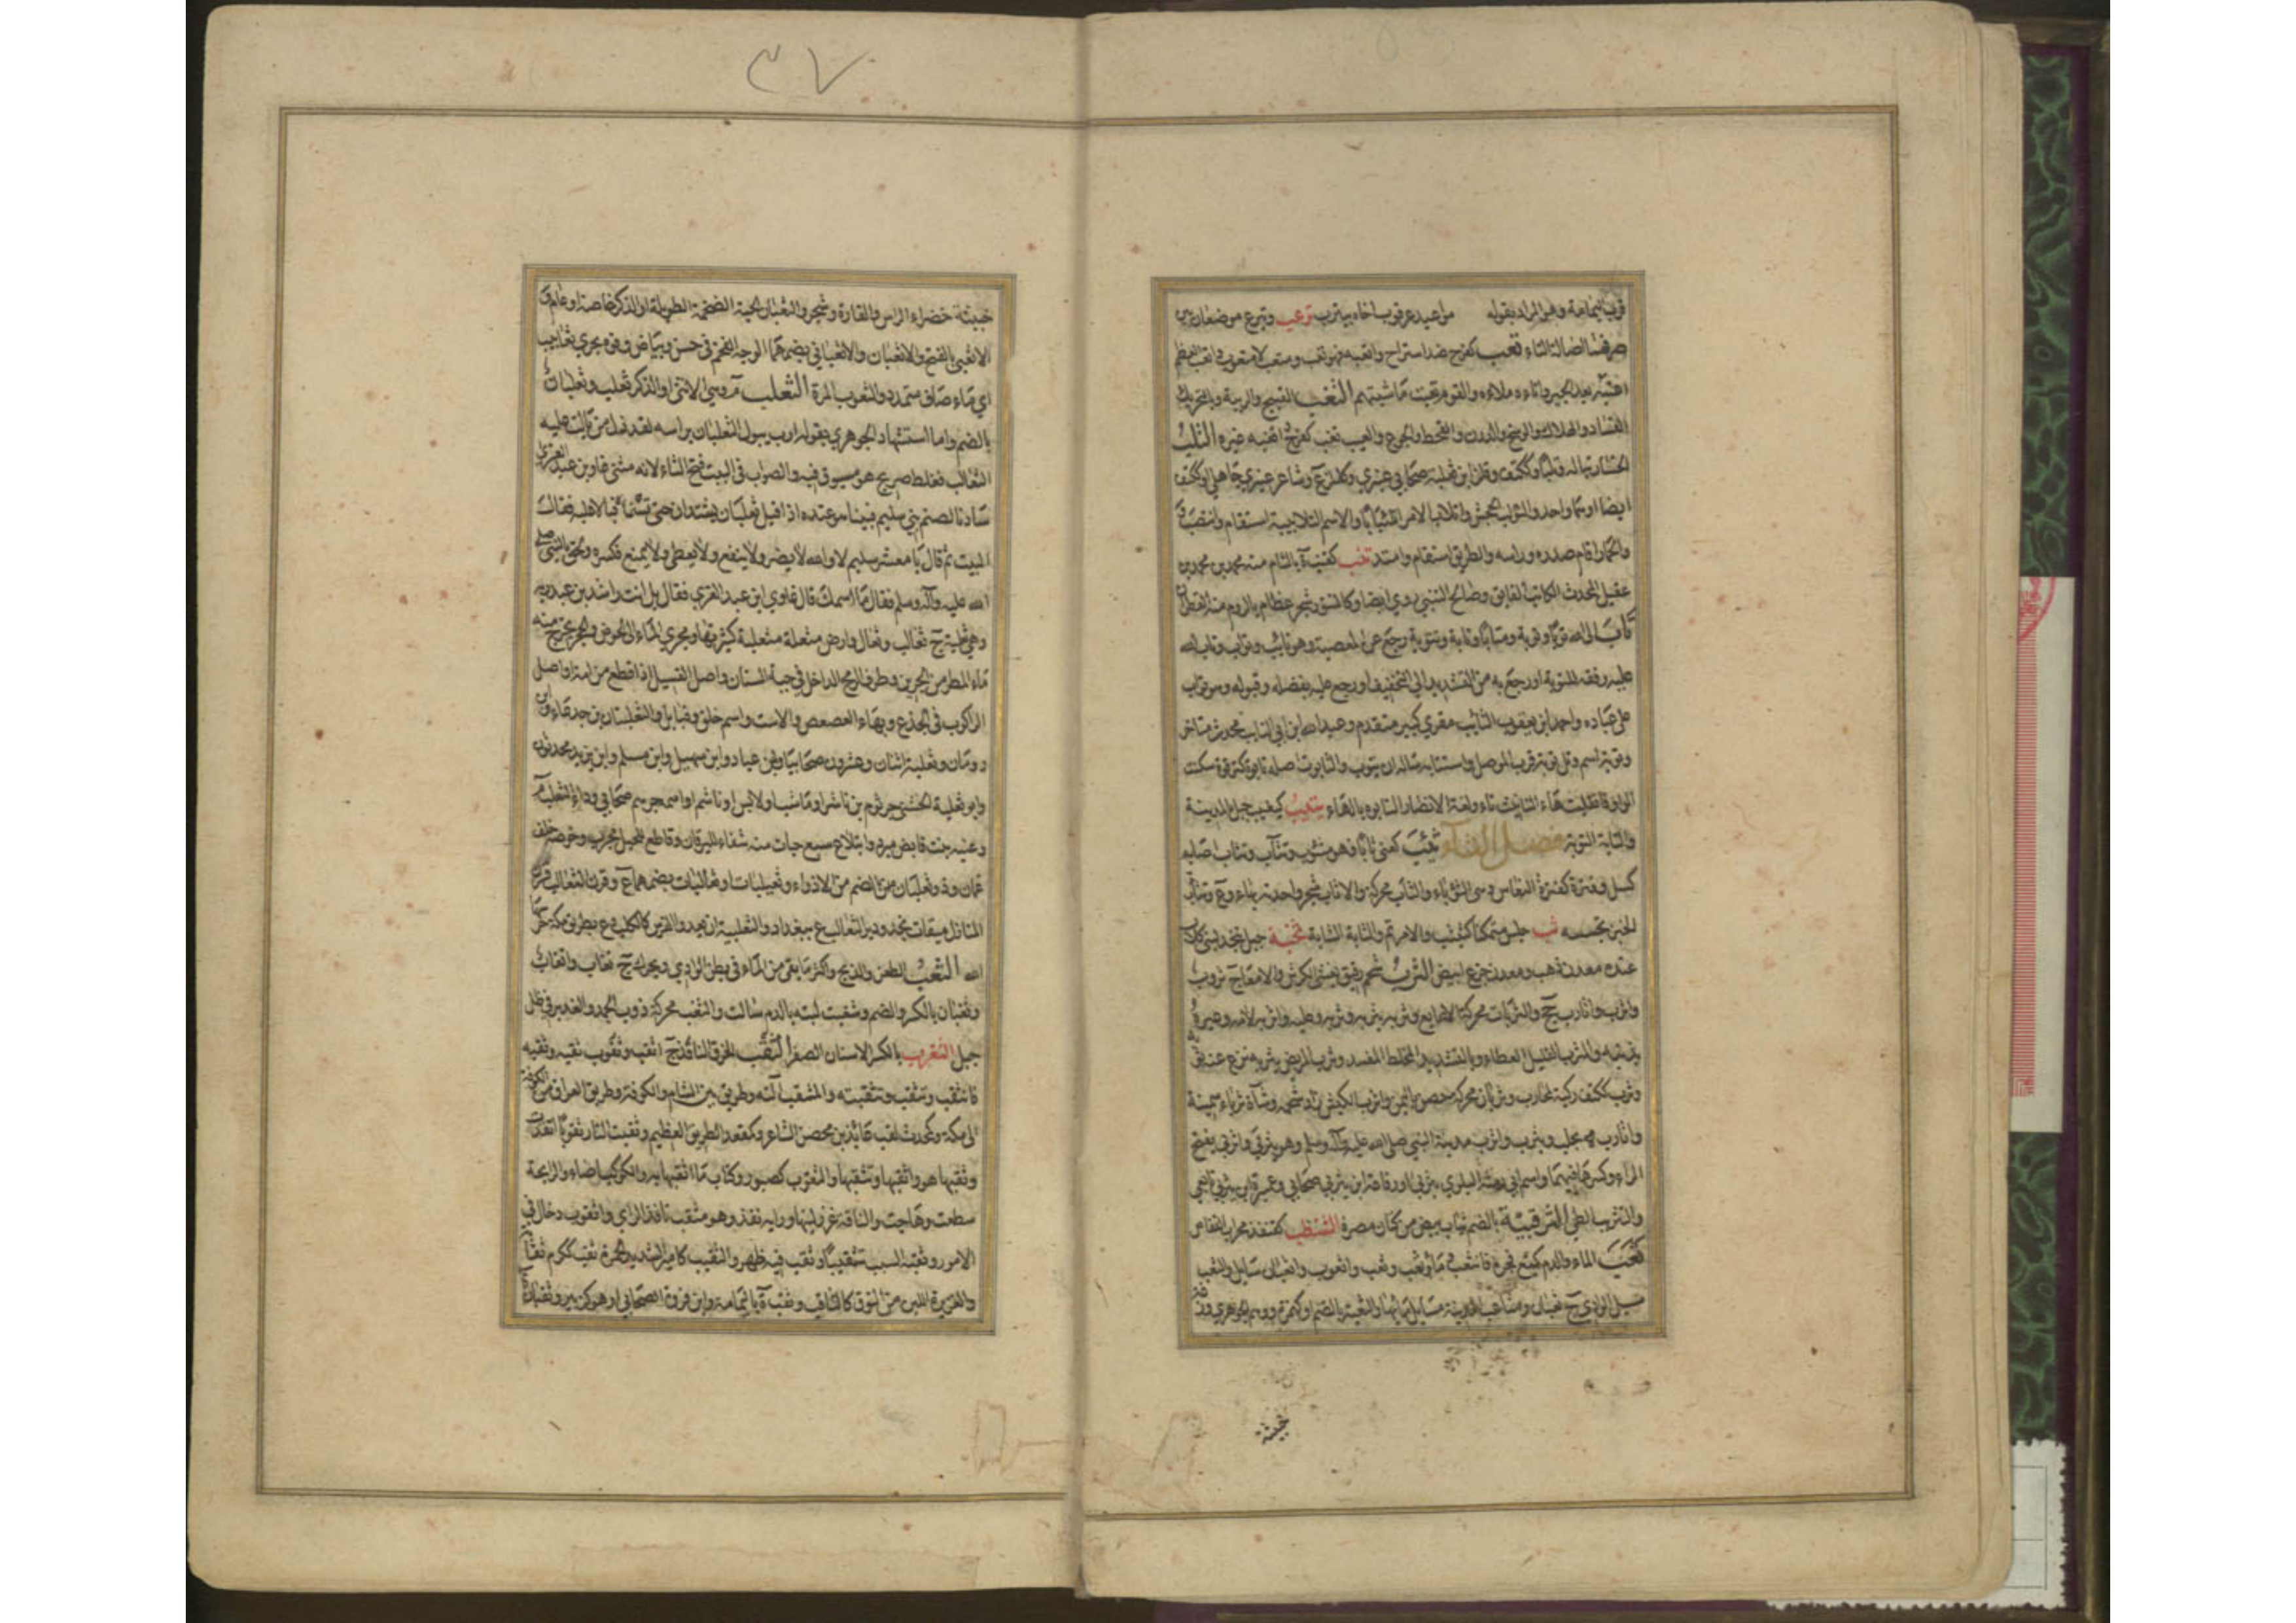 قرب اليمامة وهو المراد بقوله مواعيد عرقوب اخاه بيترب ترعب وتبرع موضعان بين
صرفهما اصالة التاء تعب كفرح ضد استراح واتعبه فهو تعب ومتعب لا متعوب واتعب العظم
اعتبه بعد الجبر واناءه ملاءه والقوم تعبت ماشيتهم التغب القبيح والريبة وبالتحريك
الفساد والهلاك والوسخ والدرن والقحط والجوع والعيب تغب كفرح واتغبه غيره التلب
الخسار تبا له وتلبا وككتف وفلز ابن ثعلبة صحابي عنبري وكفلز ع وشاعر عنبري جاهلي او ككتف
ايضا او هما واحد والتولب الجحش واتلاب الامر اتلئبابا والاسم التلابيبة استقام وانتصب
والحمار اقام صدره وراسه والطريق استقام وامتد تنب كقنب ة بالشام منه محمد بن محمد بن
عقيل المحدث الكاتب الفايق وصالح التنبي روي ايضا وكالتنور شجر عظام بالروم منه القطران
تاب الى الله توبا وتوبة ومتابا وتابة وتتوبة رجع عن المعصية وهو تائب وتواب وتاب الله
عليه وفقه للتوبة او رجع به من التشديد الى التخفيف او رجع عليه بفضله وقبوله وهو تواب
على عباده واحمد ابن يعقوب التائب مقري كبير متقدم وعبد الله ابن ابي التائب محدث متاخر
وتوبة اسم وتل توبة قرب الموصل واستتابه ساله ان يتوب والتابوت اصله تابوة كترقوة سكنت
الواو فانقلبت هاء التانيث تاء ولغة الانصار التابوه بالهاء يتيب كيغيب جبل بالمدينة
والتابة التوبة فصل الثاء ثئب كعني ثأبا فهو مثؤب وتثاب وتثاب اصابه
كسل وفترة كفترة النعاس وهى الثؤباء والثأب محركة والاثاب شجر واحدته بهاء وع وتثأب
الخبر تجسسه ثب جلس متمكنا كثبثب والامر تم والثابة الشابة ثخبة جبل بنجد لبني كلاب
عنده معدن ذهب ومعدن جزع ابيض الثرب شحم رقيق يغشى الكرش والامعاج ثروب
واثرب واثارب جج والثربات محركة الاصابع وثربه يثربه وثربه وعليه واثربه لامه وعيره
بذنبه والمثرب القليل العطاء وبالتشديد المخلط المفسد وثرب المريض يثربه نزع عنه ثوبه
وثرب ككتف ركية لمحارب وثربان محركة حصن باليمن واثرب الكبش زاد شحمه وشاة ثرباء سمينة
واثارب ة بحلب ويثرب واثرب مدينة النبي صلى الله عليه وآله وسلم وهو يثربي واثربي بفتح
الراء وكسرها فيهما واسم ابي رمثة البلوي يثربي او رفاعة ابن يثربي صحابي وعميرة ابن يثربي تابعي
والتثريب الطي الثرقبية بالضم ثياب بيض من كتان مصر الثنطب كقنفذ محراب القفاص
ثعب الماء والدم كمنع فجره فانثعب وماء ثعب وثعب واثعوب واثعبان سايل والثعب
مسيل الوادي ج ثعبان ومثاعب المدينة مسايل مائها والثعبة بالضم او كهمزة ووهم الجوهري وزغة
خبيثة
٣٧
خبيثة خضراء الراس والفارة وشجر والثعبان الحية الضخمة الطويلة او الذكر خاصة او عام و
الاثعبي بالفتح والاثعبان والاثعباني بضمهما الوجه الفخم في حسن وبياض وفوه يجري ثعابيب
اي ماء صاف متمدد والثعوب المرة الثعلب م وهي الانثى او الذكر ثعلب وثعلبان
بالضم واما استشهاد الجوهري بقوله ارب يبول الثعلبان براسه لقد ذل من بالت عليه
الثعالب فغلط صريح هو مسبوق فيه والصواب في البيت فتح الثاء لانه مثنى غاو بن عبد العزى
سادنا لصنم بني سليم فبينا هو عنده اذ اقبل ثعلبان يشتدان حتى تسنماه فبالا عليه فقال
البيت ثم قال يا معشر سليم لا والله لا يضر ولا ينفع ولا يعطي ولا يمنع فكسره ولحق بالنبي صلى
الله عليه وآله وسلم فقال ما اسمك قال غاوي ابن عبد العزي فقال بل انت راشد بن عبد ربه
وهي ثعلبة ج ثعالب وثعال وارض مثعلة مثعلبة كثيرتها ومجري الماء الى الحوض والجحر يخرج منه
ماء المطر من الجرين وطرف الرمح الداخل في جبة السنان واصل الفسيل اذا قطع من امه او اصل
الراكوب في الجذع وبهاء العصعص والاست واسم خلق وقبايل والثعلبتان بن جدعاء وابن
رومان وثعلبة اثنان وعشرون صحابيا وابن عباد وابن سهيل وابن مسلم وابن يزيد محدثون
وابو ثعلبة الخشني جرثوم بن ناشر او ناشب او لابس او ناشم او اسمه جرهم صحابي وداء الثعلب م
وعنبه نبت قابض مبرد وابتلاع سبع حبات منه شفاء لليرقان وقاطع للحبل مجرب وحوضه خلف
عمان وذو ثعلبان من الضم من الاذواء وثعيلبات او ثعالبات بضمهما ع وقرن الثعالب قرن
المنازل ميقات نجد ودير الثعالب ع ببغداد والثعلبية ان يعدو الفرس كالكلب وع بطريق مكة حرسها
الله الثغب الطعن والذبح واكثر ما بقي من الماء في بطن الوادي ويحرك ج ثغاب واثغاب
وثغبان بالكسر والضم وتثغبت لثته بالدم سالت والثغب محركة ذوب الجمد والغدير في ظل
جبل الثغرب بالكسر الاسنان الصفر الثقب الخرق النافذ ج اثقب وثقوب ثقبه وثقبه
فانثقب وتثقب وتثقبته والمثقب آلته وطريق بين الشام والكوفة وطريق العراق من الكوفة
الى مكة وكمحدث لقب عائذ بن محصن الشاعر وكمقعد الطريق العظيم وثقبت النار ثقوبا اتقدت
وثقبها هو واثقبها وتثقبها والثقوب كصبور وكتاب ما اثقبها به والكوكب اضاء والرايحة
سطعت وهاجت والناقة غزر لبنها ورايه نفذ وهو مثقب نافذ الراي واثقوب دخال في
الامور وثقبه الشيب تثقيبا وثقب فيه ظهر والثقيب كامير الشديد الحمرة ثقب ككرم ثقابة
والغزيرة اللبن من النوق كالثاقب وثقب ة باليمامة وابن فروة الصحابي او هو كزبير وثقبان ة